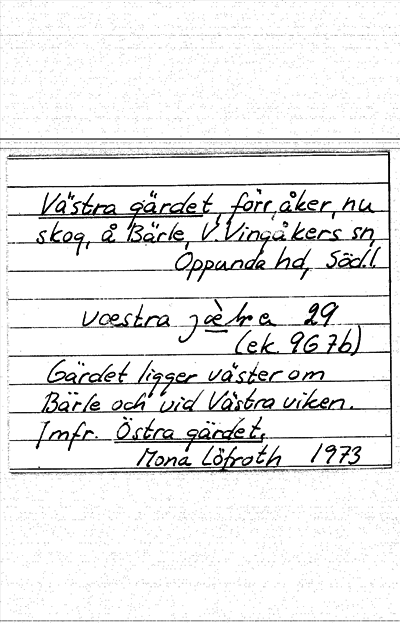 Västra gärdet, förr, åker, nu
skog, å Bärle, V. Vingåkers sn,
Oppunda hd, Södl.
væstra 29
(ek. 9G 7b)
Gärdet ligger väster om
Bärle och vid Västra viken.
Jmfr. Östra gärdet.
Mona Löfroth 1973